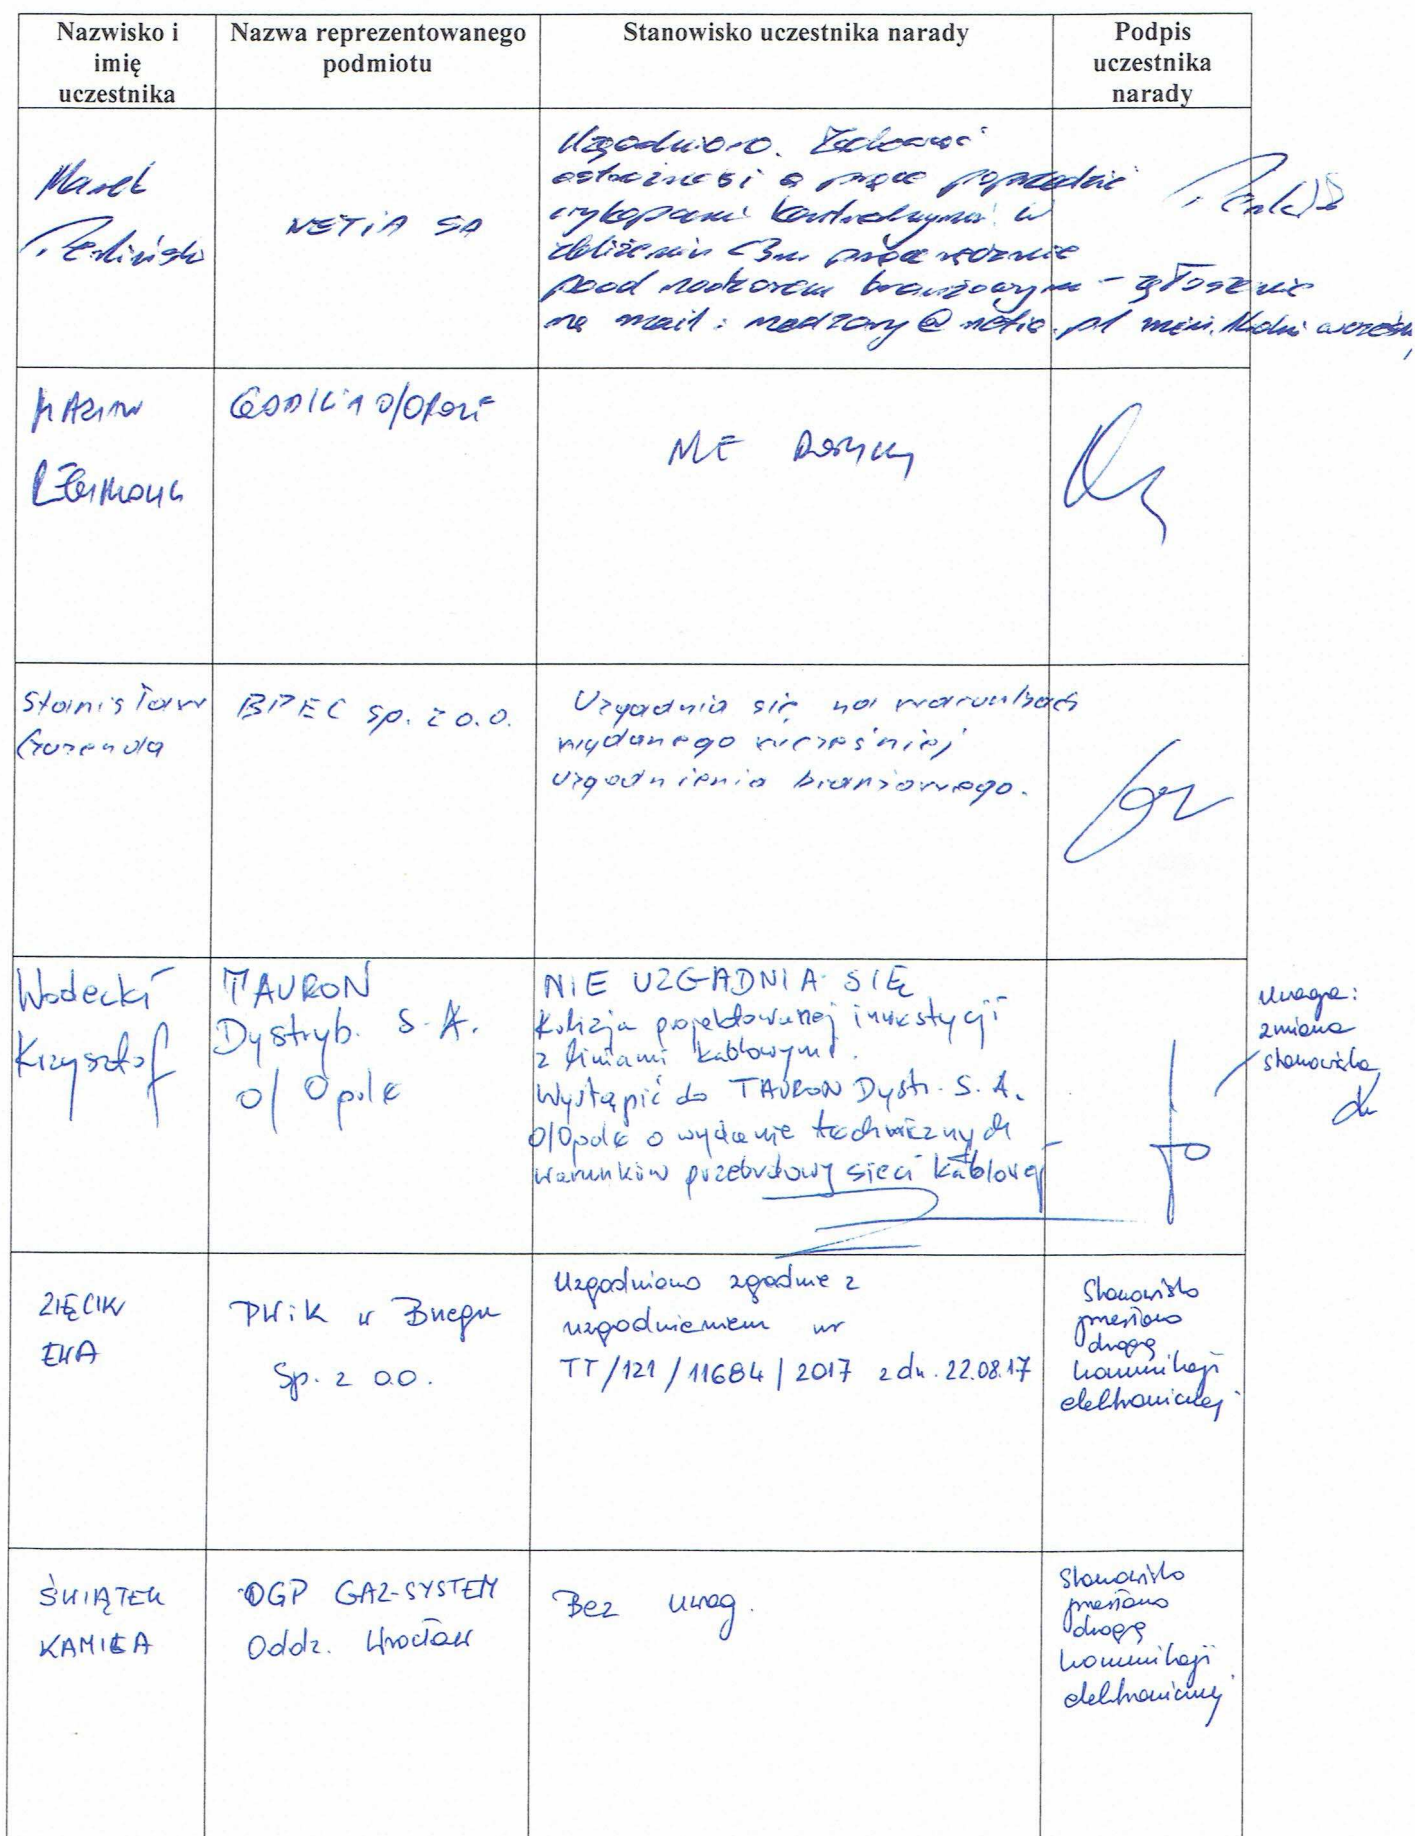 Nazwisko i
imię
uczestnika
Nazwa reprezentowanego
podmiotu
Stanowisko uczestnika narady
Podpis
uczestnika
narady
Marek
NETIA SA
Uzgodniono. Zachować
ostrożność a prace poprzedzić
wykopami kontrolnymi w
zbliżeniu <3m prace ręcznie
pood nadzorem branżowym - zgłoszenie
na mail: nadzory@netia.pl min.
NIE DOTYCZY
Stanisław
BPEC sp. z o.o.
Uzgadnia się na warunkach
wydanego wcześniej
uzgodnienia branżowego.
Wodecki
Krzysztof
TAURON
Dystryb. S.A.
O/Opole
NIE UZGADNIA SIĘ
Kolizja projektowanej inwestycji
z liniami kablowymi.
Wystąpić do TAURON Dystr. S.A.
O/Opole o wydanie technicznych
warunków przebudowy sieci kablowej
Uwaga:
zmiana
stanowiska
ZIĘCIK
EWA
PWiK w Brzegu
Sp. z o.o.
Uzgodniono zgodnie z
uzgodnieniem nr
TT/121/11684/2017 z dn. 22.08.17
Stanowisko
przesłano
drogą
komunikacji
elektronicznej
ŚWIĄTEK
KAMILA
OGP GAZ-SYSTEM
Oddz. Wrocław
Bez uwag.
Stanowisko
przesłano
drogą
komunikacji
elektronicznej